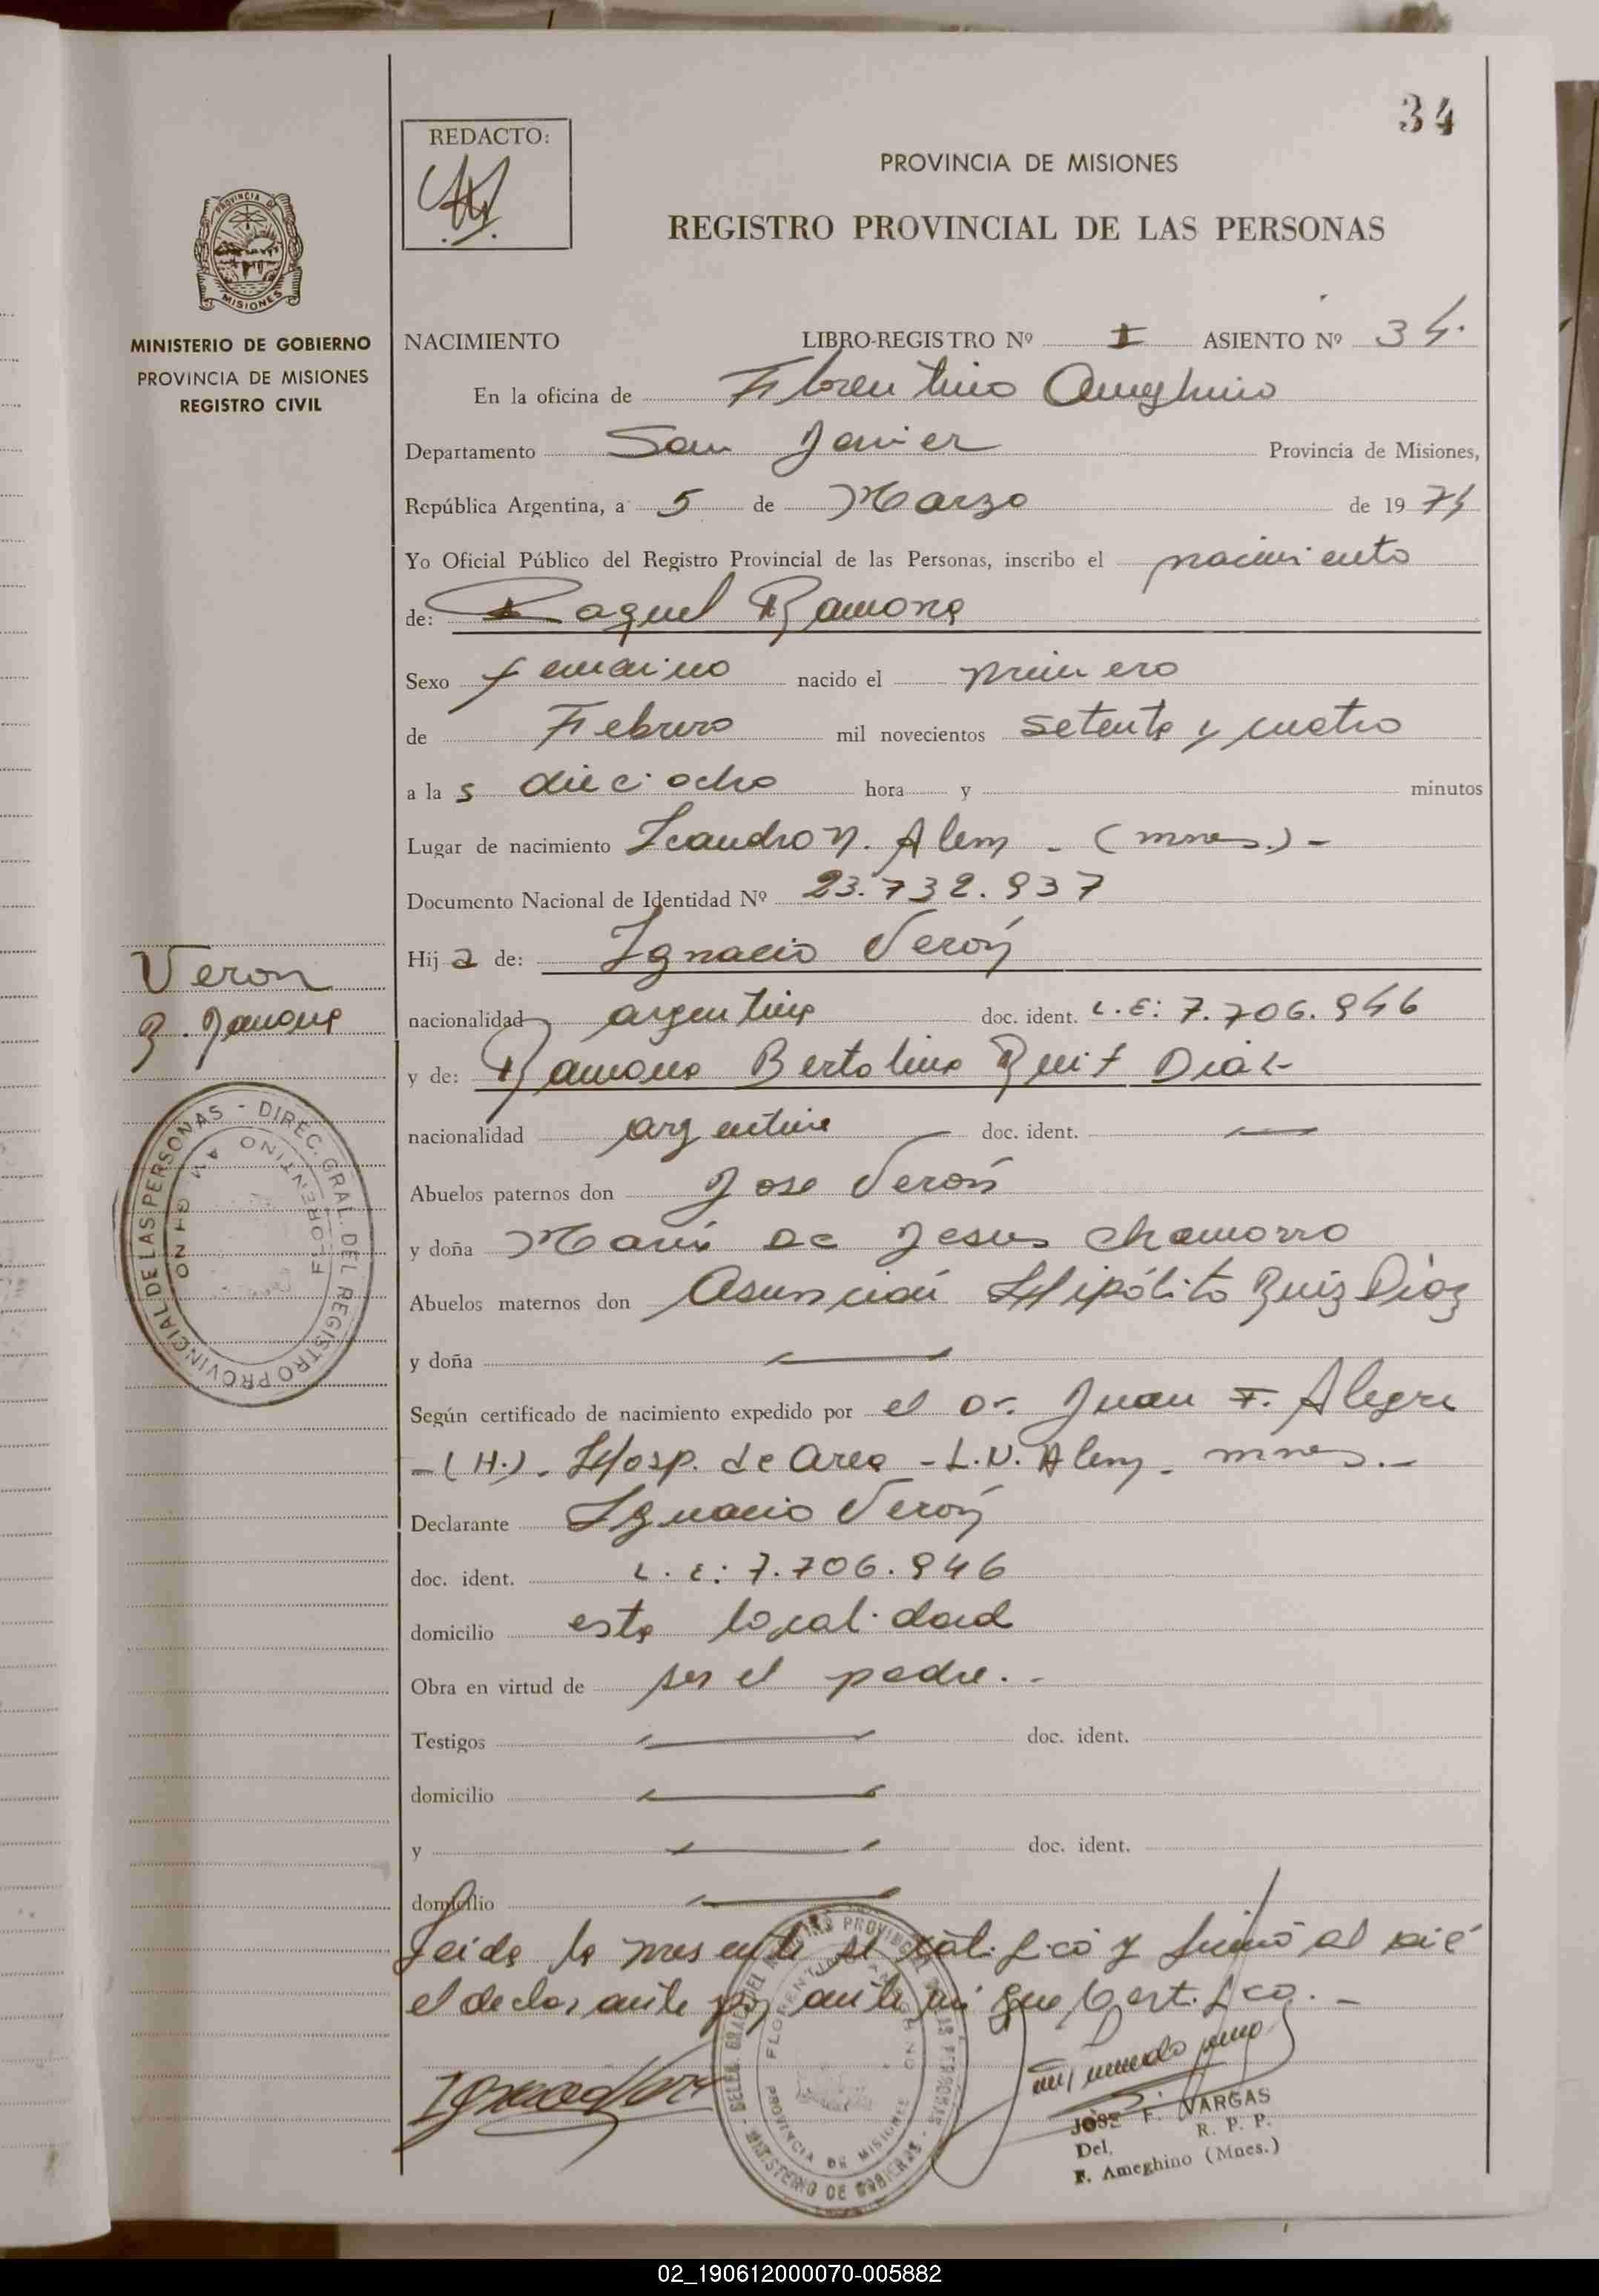 34
REDACTO:
PROVINCIA DE MISIONES
REGISTRO PROVINCIAL DE LAS PERSONAS
PROVINCIA DE MISIONES
MINISTERIO DE GOBIERNO
PROVINCIA DE MISIONES
REGISTRO CIVIL
NACIMIENTO LIBRO-REGISTRO Nº I ASIENTO Nº 34.
En la oficina de Florentino Ameghino
Departamento San Javier Provincia de Misiones,
República Argentina, a 5 de Marzo de 1974
Yo Oficial Público del Registro Provincial de las Personas, inscribo el nacimiento
de: Raquel Ramona
Sexo femenino nacido el primero
de Febrero mil novecientos setenta y cuatro
a la s dieciocho hora y minutos
Lugar de nacimiento Leandro N. Alem - (mnes.) -
Documento Nacional de Identidad Nº 23.732.937
Hij a de: Ignacio Verón
Veron
R. Ramona
nacionalidad argentina doc. ident. L.E: 7.706.946
y de: Ramona Bertolina Ruiz Diaz
nacionalidad argentina doc. ident. —
Abuelos paternos don Jose Verón
y doña María de Jesus Chamorro
Abuelos maternos don Asunción Hipólito Ruiz Diaz
y doña —
DIREC. GRAL. DEL REGISTRO PROVINCIAL DE LAS PERSONAS -
FLORENTINO AMEGHINO
Según certificado de nacimiento expedido por el Dr. Juan F. Alegre
-(H.)- Hosp. de Area - L.N. Alem - mnes.-
Declarante Ignacio Verón
doc. ident. L.E: 7.706.946
domicilio esta localidad
Obra en virtud de ser el padre.-
Testigos — doc. ident.
domicilio —
y — doc. ident.
domicilio —
Leida la presente se ratificó y firmó al pié
el declarante por ante mi que Certifico.-
FLORENTINO AMEGHINO
PROVINCIA DE MISIONES
MINISTERIO DE GOBIERNO
JOSE F. VARGAS
Del. R. P. P.
F. Ameghino (Mnes.)
02_190612000070-005882